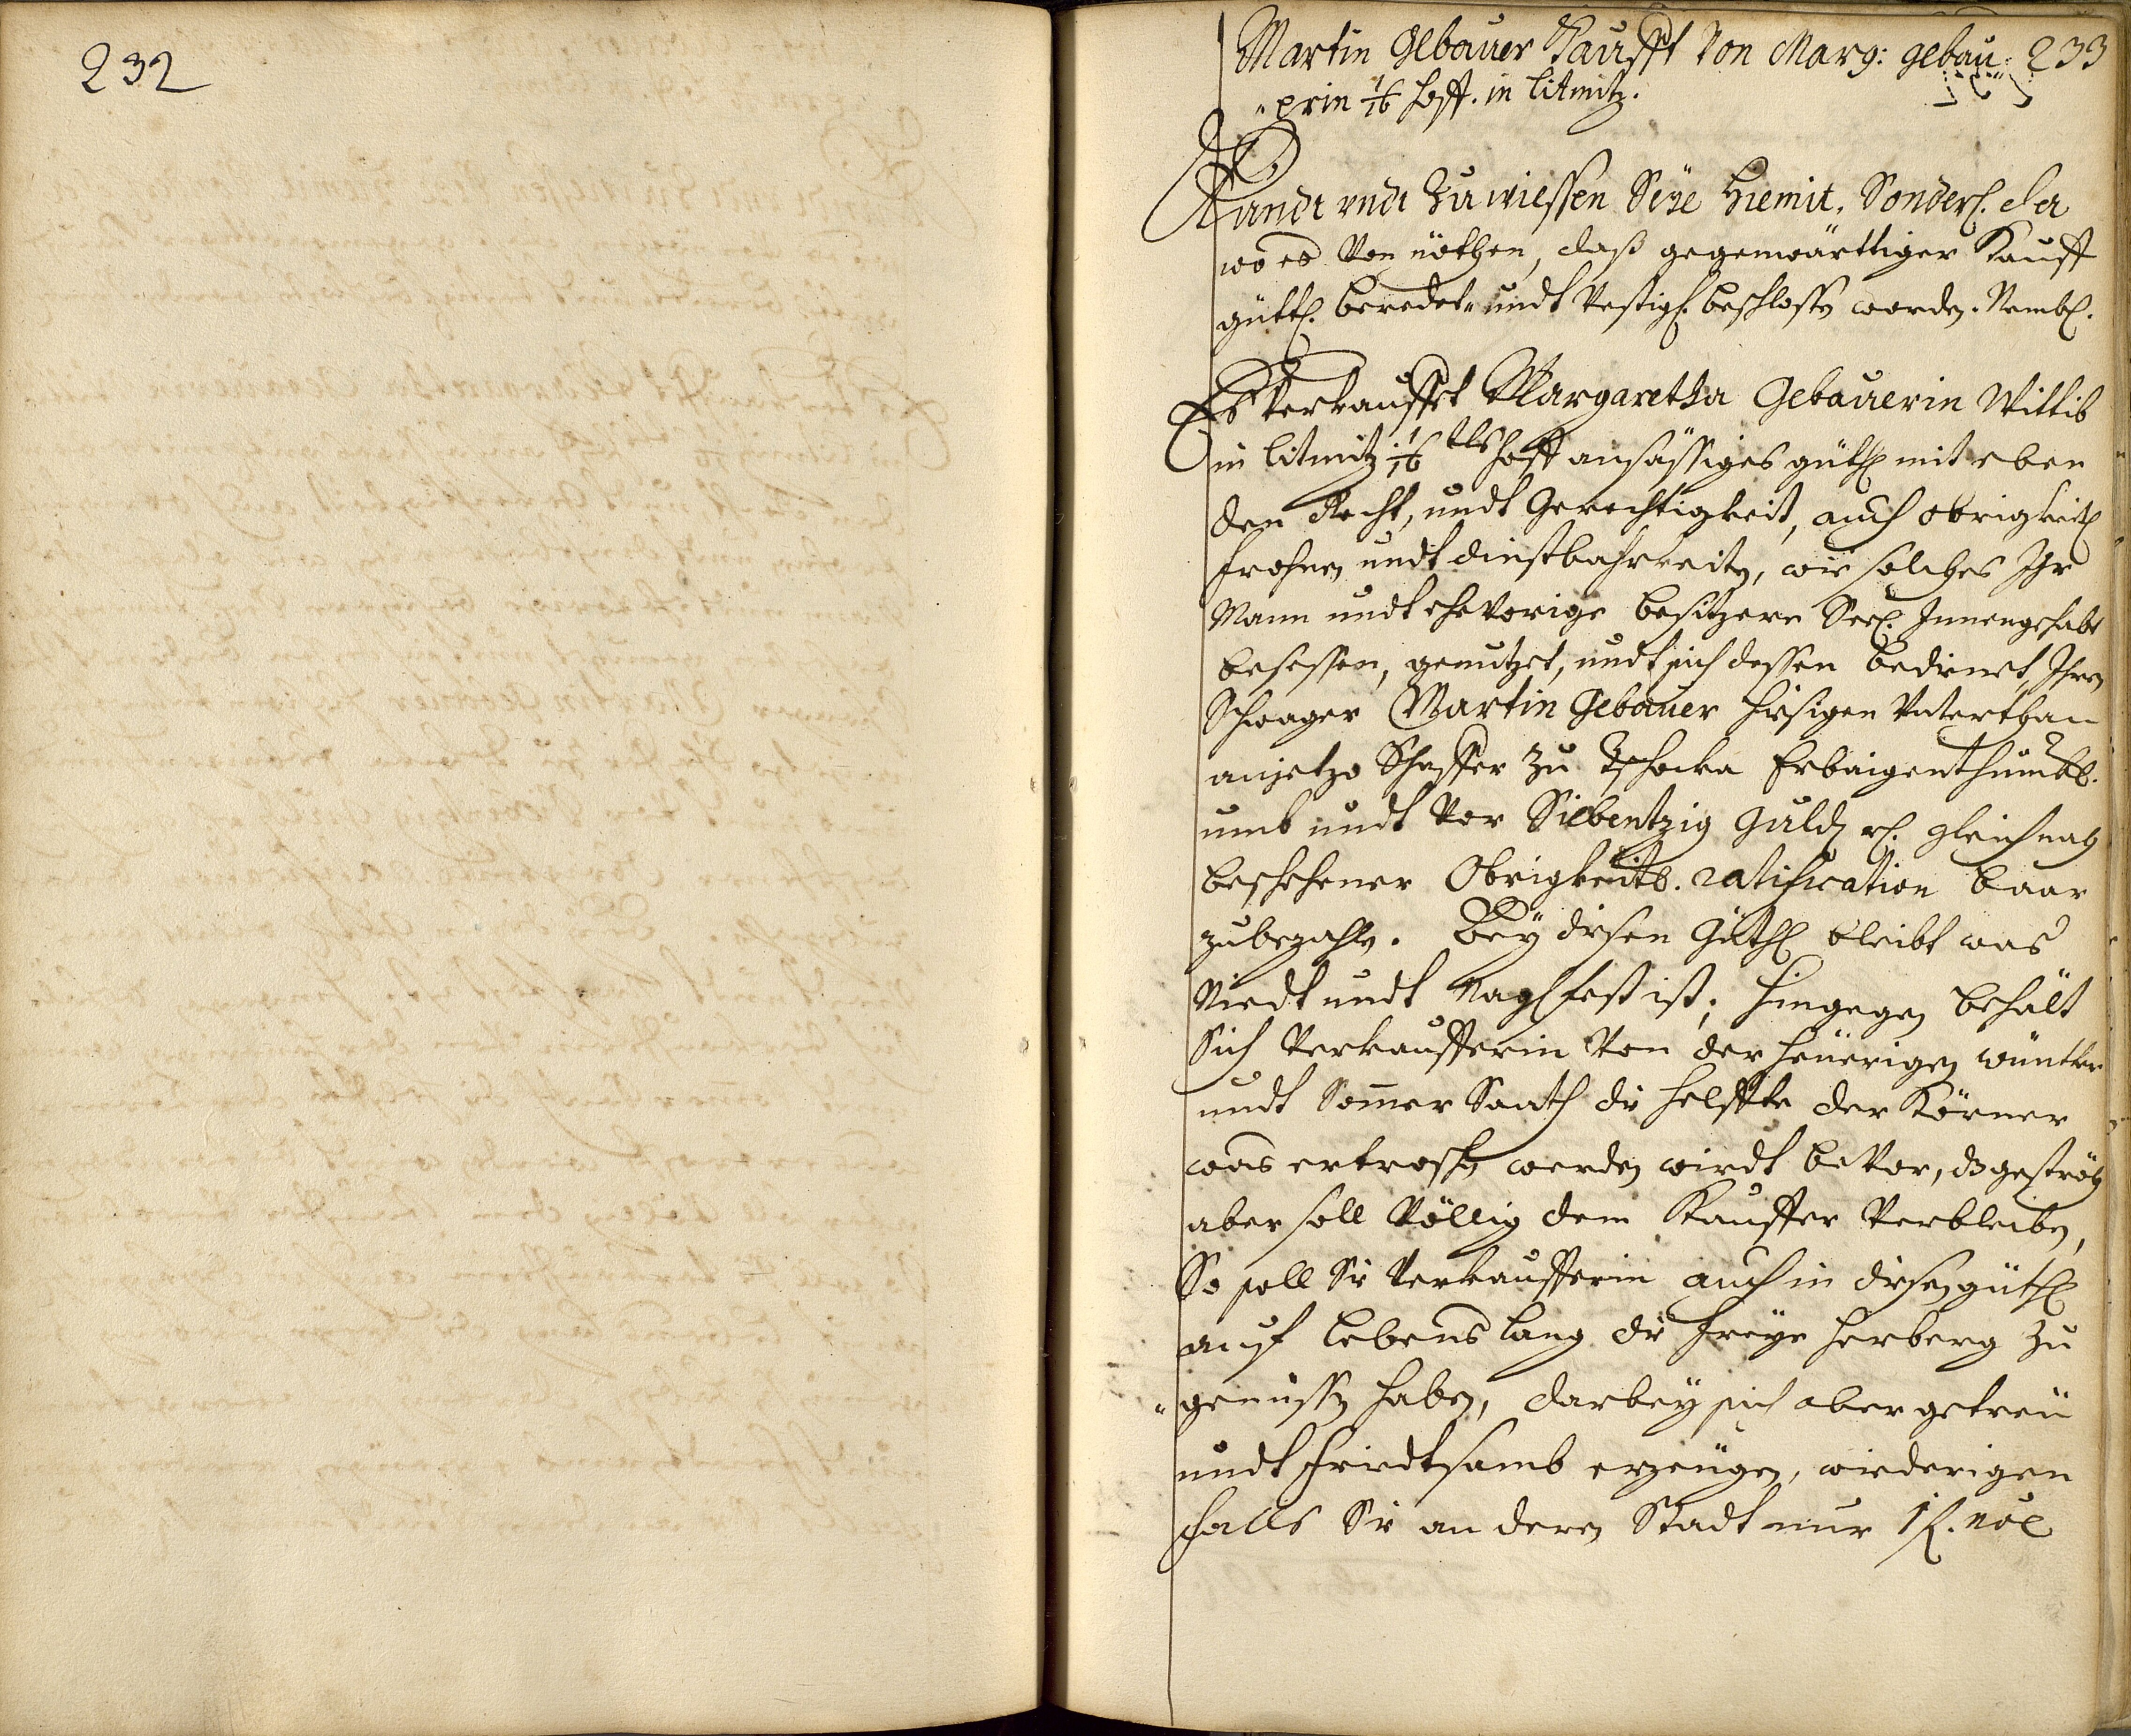 232
Martin Gebauer Kaufft Von Marg: gebau: 233
"erin 1/16 Hoff. in Litmitz.
Kundt undt Zu wiessen Seÿe Hiemit, Sonderl. da
wo es Von nöthen, daß gegenwärttiger Kauff
güttl. beredet" undt Vestigl. beschlossen worden. Nembl.
Es Verkauffet Margaretha Gebauerin Wittib
in Litmitz 1/16 tls hoff ansässiges güthl mit eben
den Recht, undt Gerechtigkeit, auch obrigkeitl
frohnen undt dinstbahrkeiten, wie solches Ihr
Mann undt ehevorige besitzere Seel. Innengehabt
besessen, genutzet, undt sich dessen bedienet, Ihren
Schwager Martin Gebauer hiesigen Unterthan
anjetzo Schaffer zu Tschocka Erbaigenthumbl.
umb undt Vor Siebentzig Guld rl. gleich nach
beschehener Obrigkeitl. ratification baar
zubezahlen. Beÿ diesen Güthl bleibt was
Niedt undt Naglfest ist; hingegen behält
sich Verkaufferin Von der heuerigen wünter
undt Sommer Saath die helffte der Körner
was ertroschen werden wirdt bevor, ds geströh
aber soll Völlig dem Kauffer Verbleiben,
So soll Sie Verkaufferin auch in diesen güthl
auf lebens lang die freÿe herberg zu
"genüssen haben, darbeÿ sich aber getreu
undt friedtsamb erzeugen, wiederigen
falls Sie an deren Stadt nur 1 f.